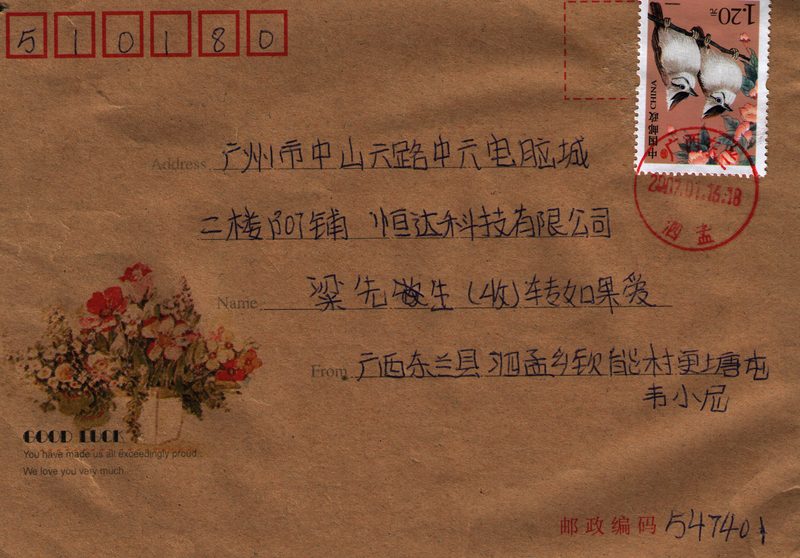 510180
1.20元
中国邮政 CHINA
Address 广州市中山六路中六电脑城
二楼B07铺 恒达科技有限公司
Name 梁先生(收)转如果爱
From 广西东兰县泗孟乡钦能村更上塘屯
韦小尼
2007.01.16.18
泗孟
GOOD LUCK
You have made us all exceedingly proud.
We love you very much.
邮政编码 547401